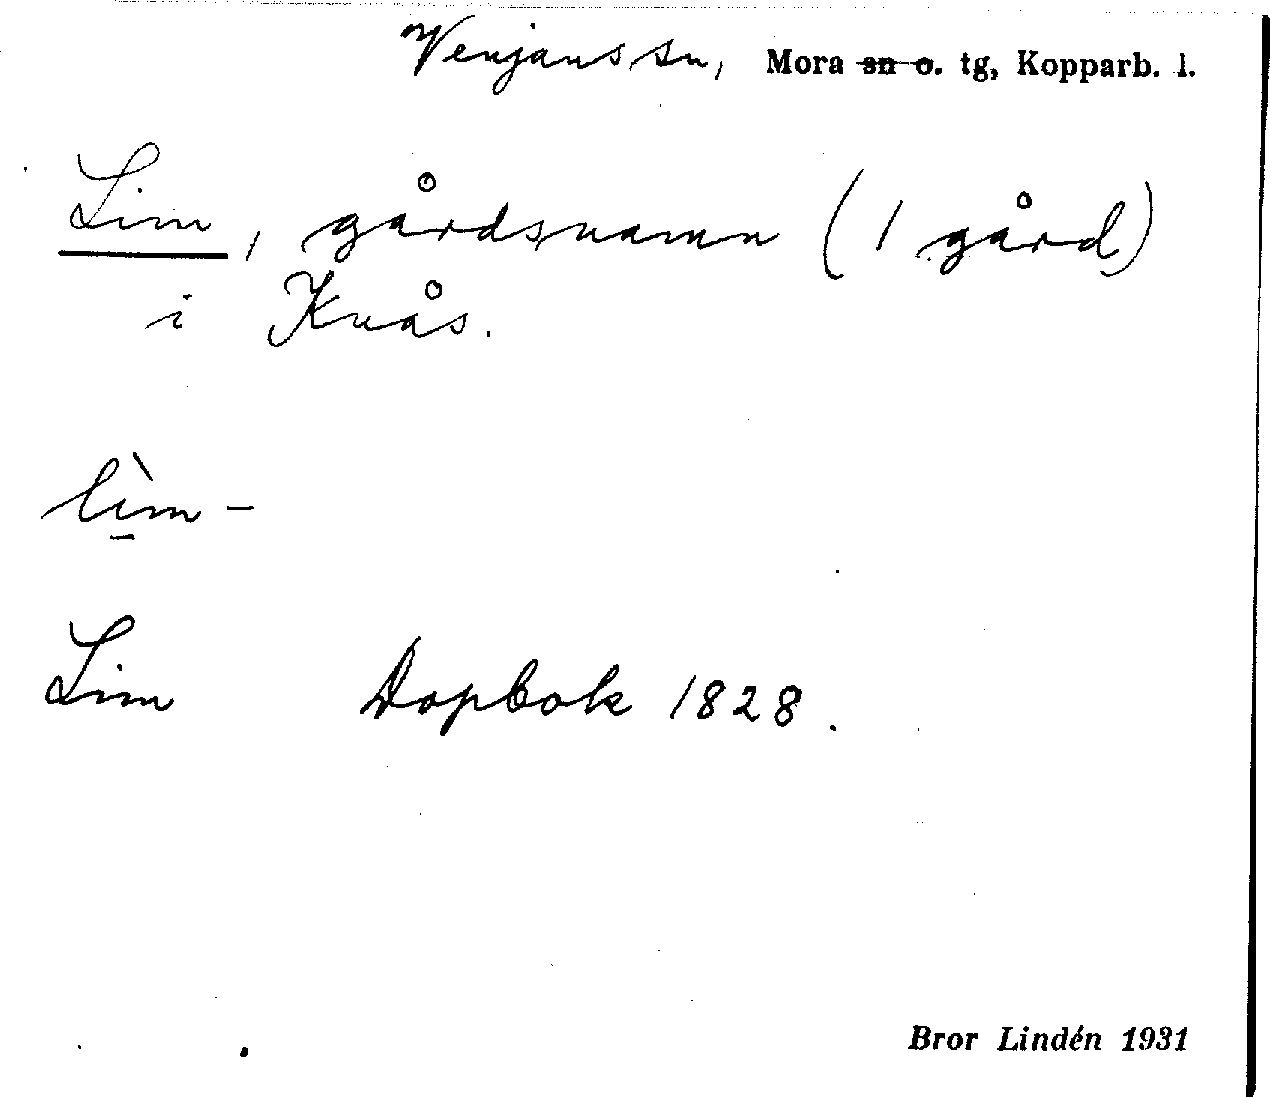 Venjans sn, Mora sn o. tg, Kopparb. l.
Lim, gårdsnamn (1 gård)
i Knås.
lìm-
Lim Dopbok 1828.
Bror Lindén 1931